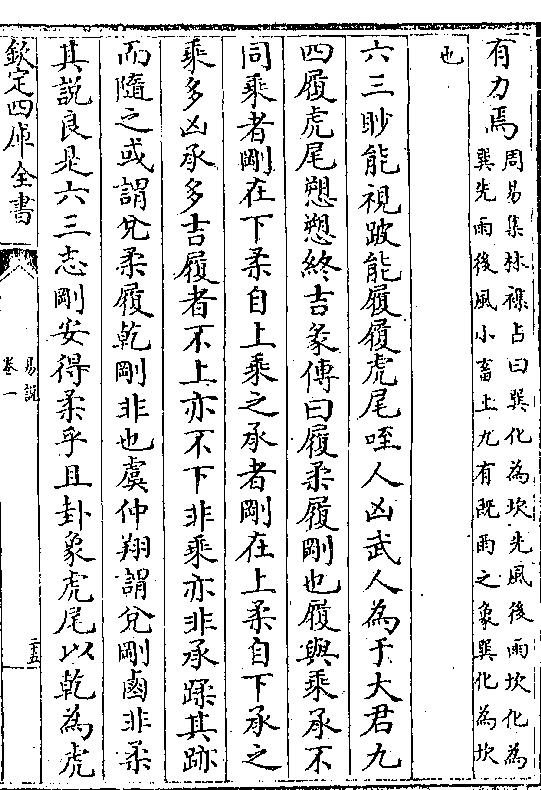 有力焉周易集林襍占曰巽化為坎先風後雨坎化為
巽先雨後風小畜上九有既雨之象巽化為坎
也
六三眇能視跛能履履虎尾咥人凶武人為于大君九
四履虎尾愬愬終吉彖傳曰履柔履剛也履與乘承不
同乘者剛在下柔自上乘之承者剛在上柔自下承之
乘多凶承多吉履者不上亦不下非乘亦非承蹂其跡
而隨之或謂兌柔履乾剛非也虞仲翔謂兌剛鹵非柔
其説良是六三志剛安得柔乎且卦象虎尾以乾為虎
欽定四庫全書
易説
卷一
二十五